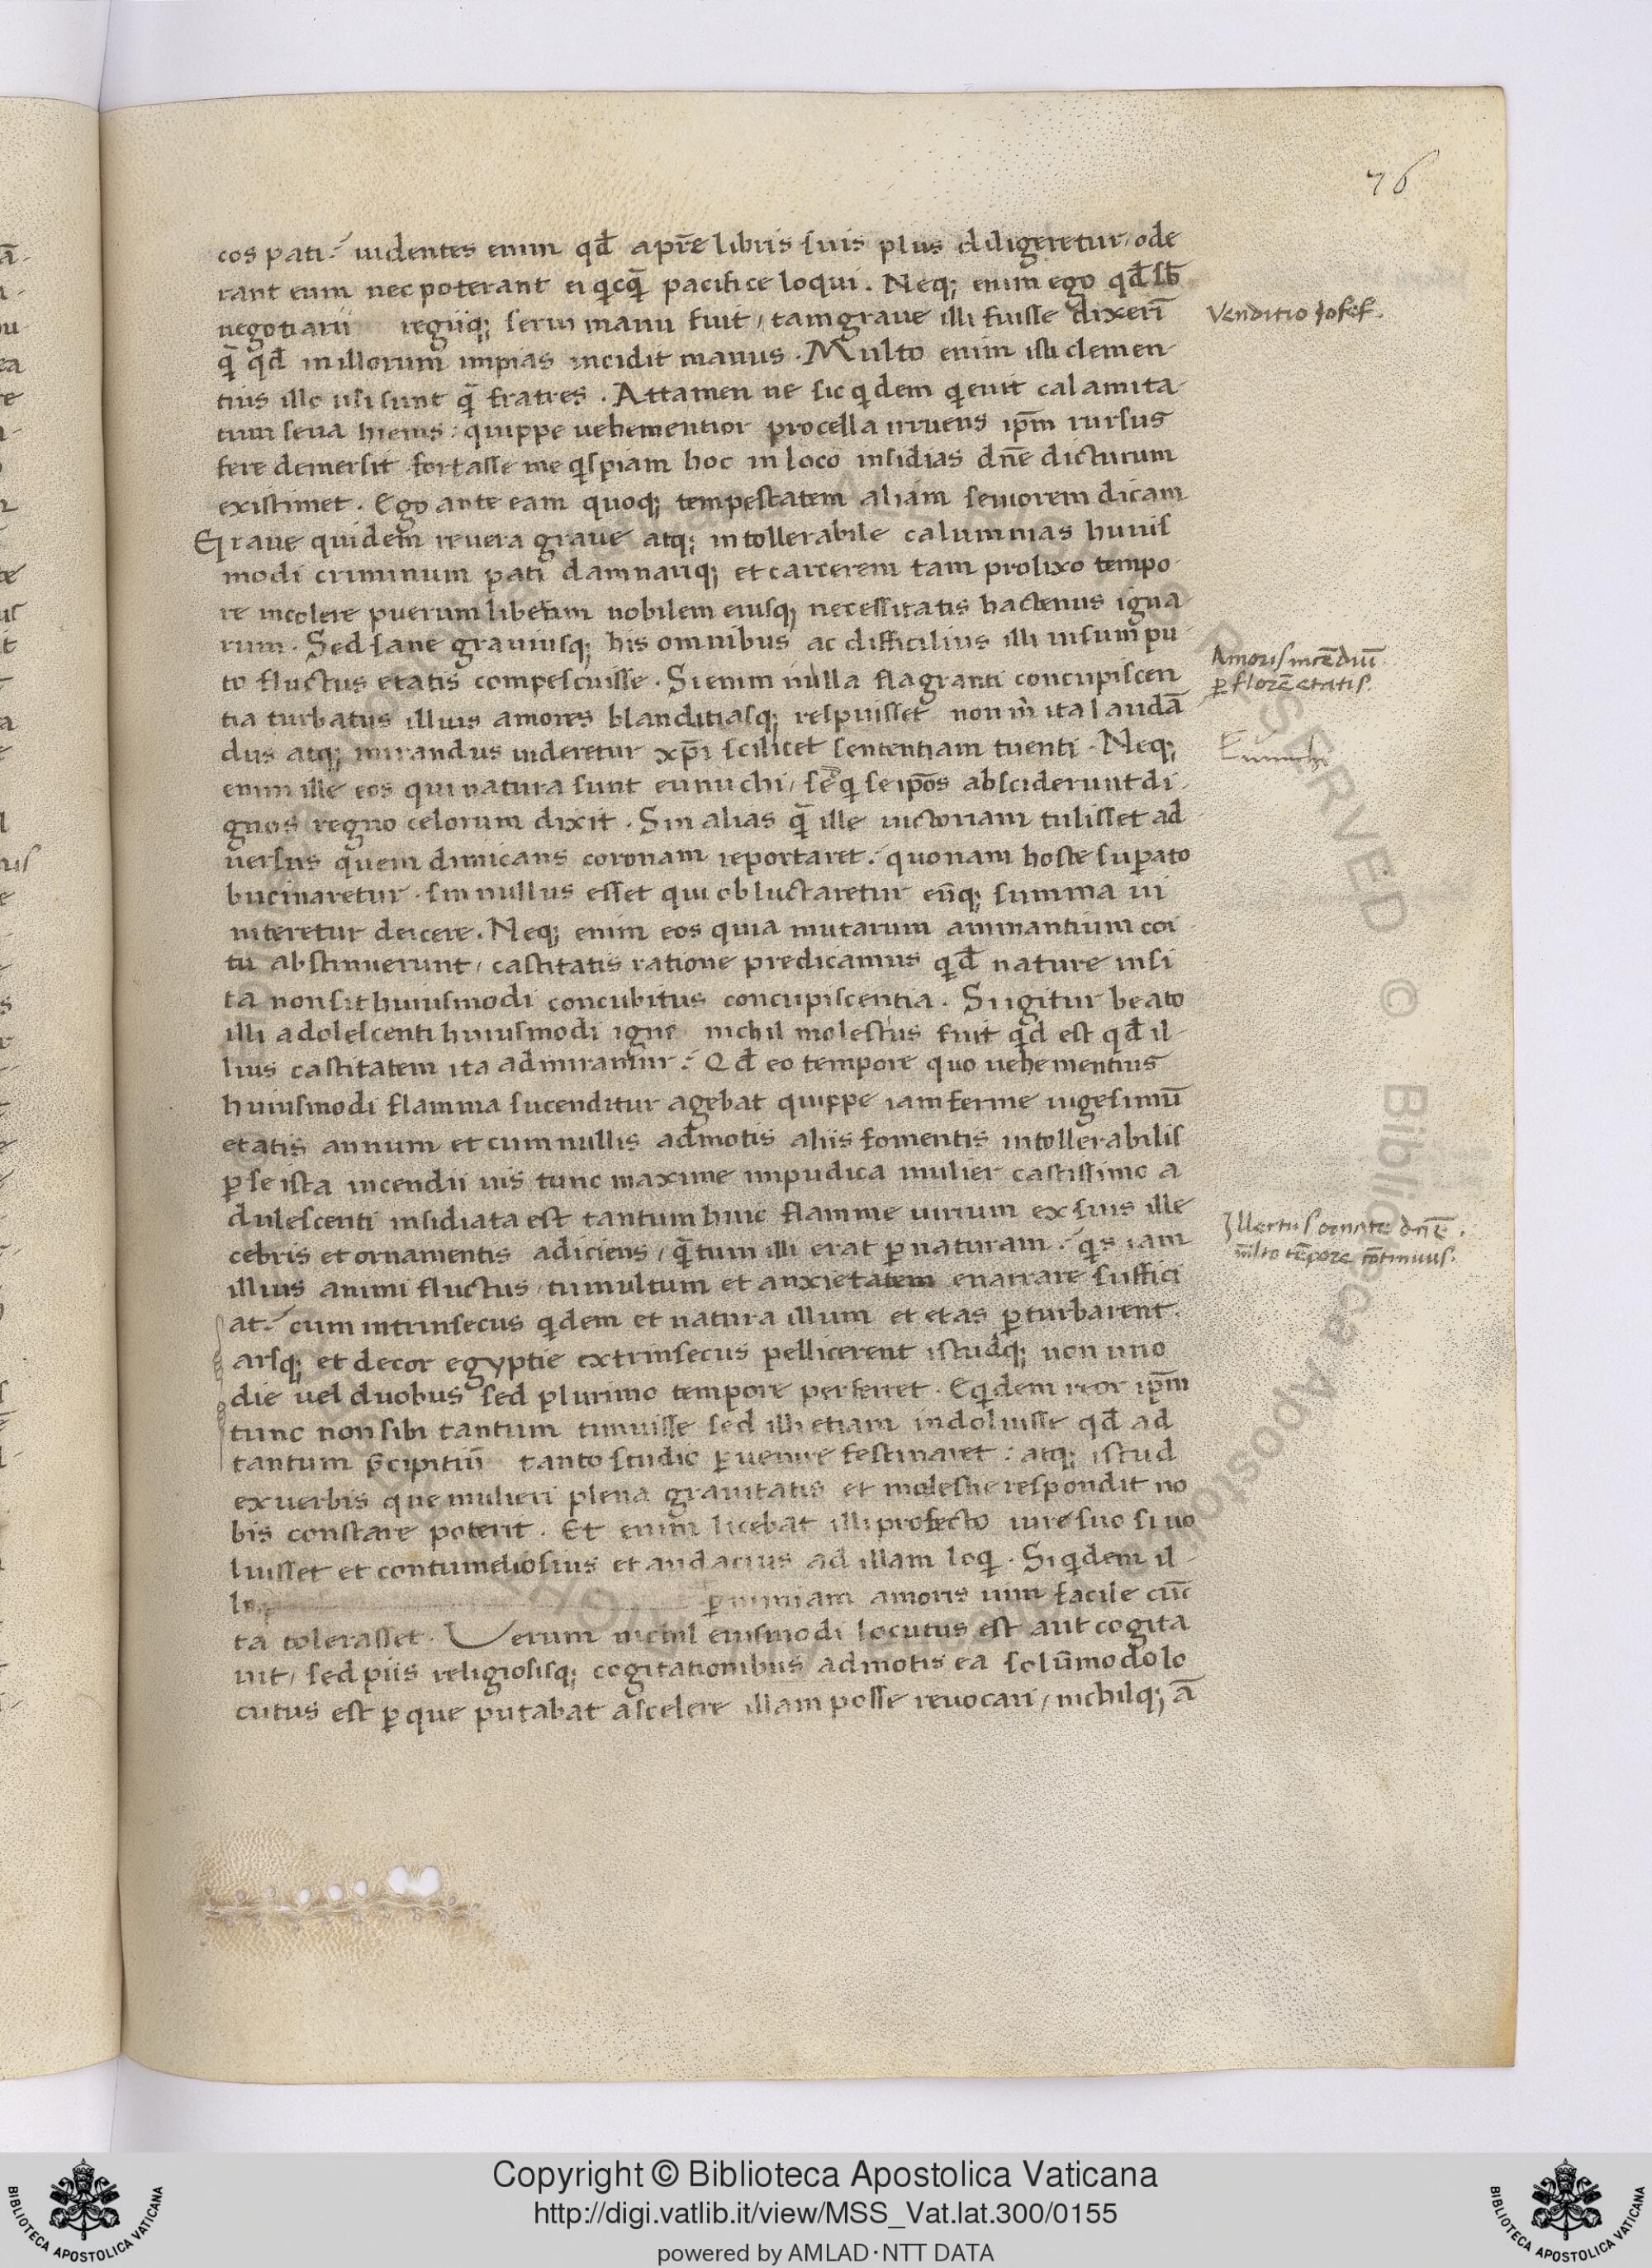 76
cos pati. uidentes enim qd̄ a pr̄e libris suis plus ddigeretur, ode
rant eum nec poterant ei qicq̄ pacifice loqui. Neq; enim ego qd̄ sb̄
negotiarii regiiq; serui manu fuit, tam graue illi fuisse dixeri̅
q̄ qd̄ in illorum impias incidit manus. Multo enim isti clemen-
tius illo usi sunt q̄ fratres. Attamen ne sic qidem qieuit calamita-
tum seua hiems: quippe uehementior procella irruens ip̄m rursus
fere demersit. fortasse me qispiam hoc in loco insidias dn̄e dicturum
existimet. Ego ante eam quoq; tempestatem aliam seuiorem dicam
Graue quidem reuera graue atq; intollerabile calumnias huius
modi criminum pati damnariq; et carcerem tam prolixo tempo-
re incolere puerum liberum nobilem eiusq; necessitatis hactenus igna-
rum. Sed sane grauiusq; his omnibus ac difficilius illi uisum puto
to fluctus etatis compescuisse. Si enim nulla flagranti concupiscen
tia turbatus illius amores blanditiasq; respuisset non m̄ ita laudā
dus atq; mirandus uideretur xp̄i scilicet sententiam tuenti. Neq;
enim ille eos qui natura sunt eunuchi, sēqi se ip̄os absciderunt di-
gnos regno celorum dixit. Sin alias q̄ ille uictoriam tulisset ad
uersus quem dimicans coronam reportaret. quonam hoste supato
bucinaretur. sin nullus esset qui obluctaretur eūq; summa ui
niteretur deicere. Neq; enim eos quia mutarum animantium coi-
tu abstinuerunt, castitatis ratione predicamus qd̄ nature insi
ta non sit huiusmodi concubitus concupiscentia. Si igitur beato
illi adolescenti huiusmodi igne nichil molestus fuit qid est qd̄ il-
lius castitatem ita admiramur. Qd̄ eo tempore quo uehementius
huiusmodi flamma sucenditur agebat quippe iam ferme uigesimū
etatis annum et cum nullis admotis aliis fomentis intollerabilis
p se ista incendii uis tunc maxime impudica mulier castissimo a
dulescenti insidiata est tantum huic flamme uirium ex suis ille
cebris et ornamentis adiciens, q̄tum illi erat p naturam. qis iam
illius animi fluctus, tumultum et anxietatem enarrare suffici
at. cum intrinsecus qidem et natura illum et etas pturbarent.
arsq; et decor egyptie extrinsecus pellicerent istudq; non uno
die uel duobus sed plurimo tempore perferret. Eqidem reor ip̄m
tunc non sibi tantum timuisse sed illi etiam indoluisse qd̄ ad
tantum p̄cipitiū tanto studio puenire festinaret: atq; istud
ex uerbis que mulieri plena grauitatis et molestie respondit no
bis constare poterit. Et enim licebat illi profecto iure suo si uo
luisset et contumeliosius et audacius ad illam loqi. Siqidem il-
la p nimiam amoris uim facile cūc
ta tolerasset. Verum nichil eiusmodi locutus est aut cogita
uit, sed piis religiosisq; cogitationibus admotis ea solūmodo lo
cutus est p que putabat a scelere illam posse reuocari, nichilq; ā
Venditio Josef.
Amoris incēdiū
p florē etatis.
Eunuchi
Illectus ornate dn̄e.
multo tēpore cōtinuus.
Copyright © Biblioteca Apostolica Vaticana
http://digi.vatlib.it/view/MSS_Vat.lat.300/0155
powered by AMLAD·NTT DATA
BIBLIOTECA APOSTOLICA VATICANA
BIBLIOTECA APOSTOLICA VATICANA